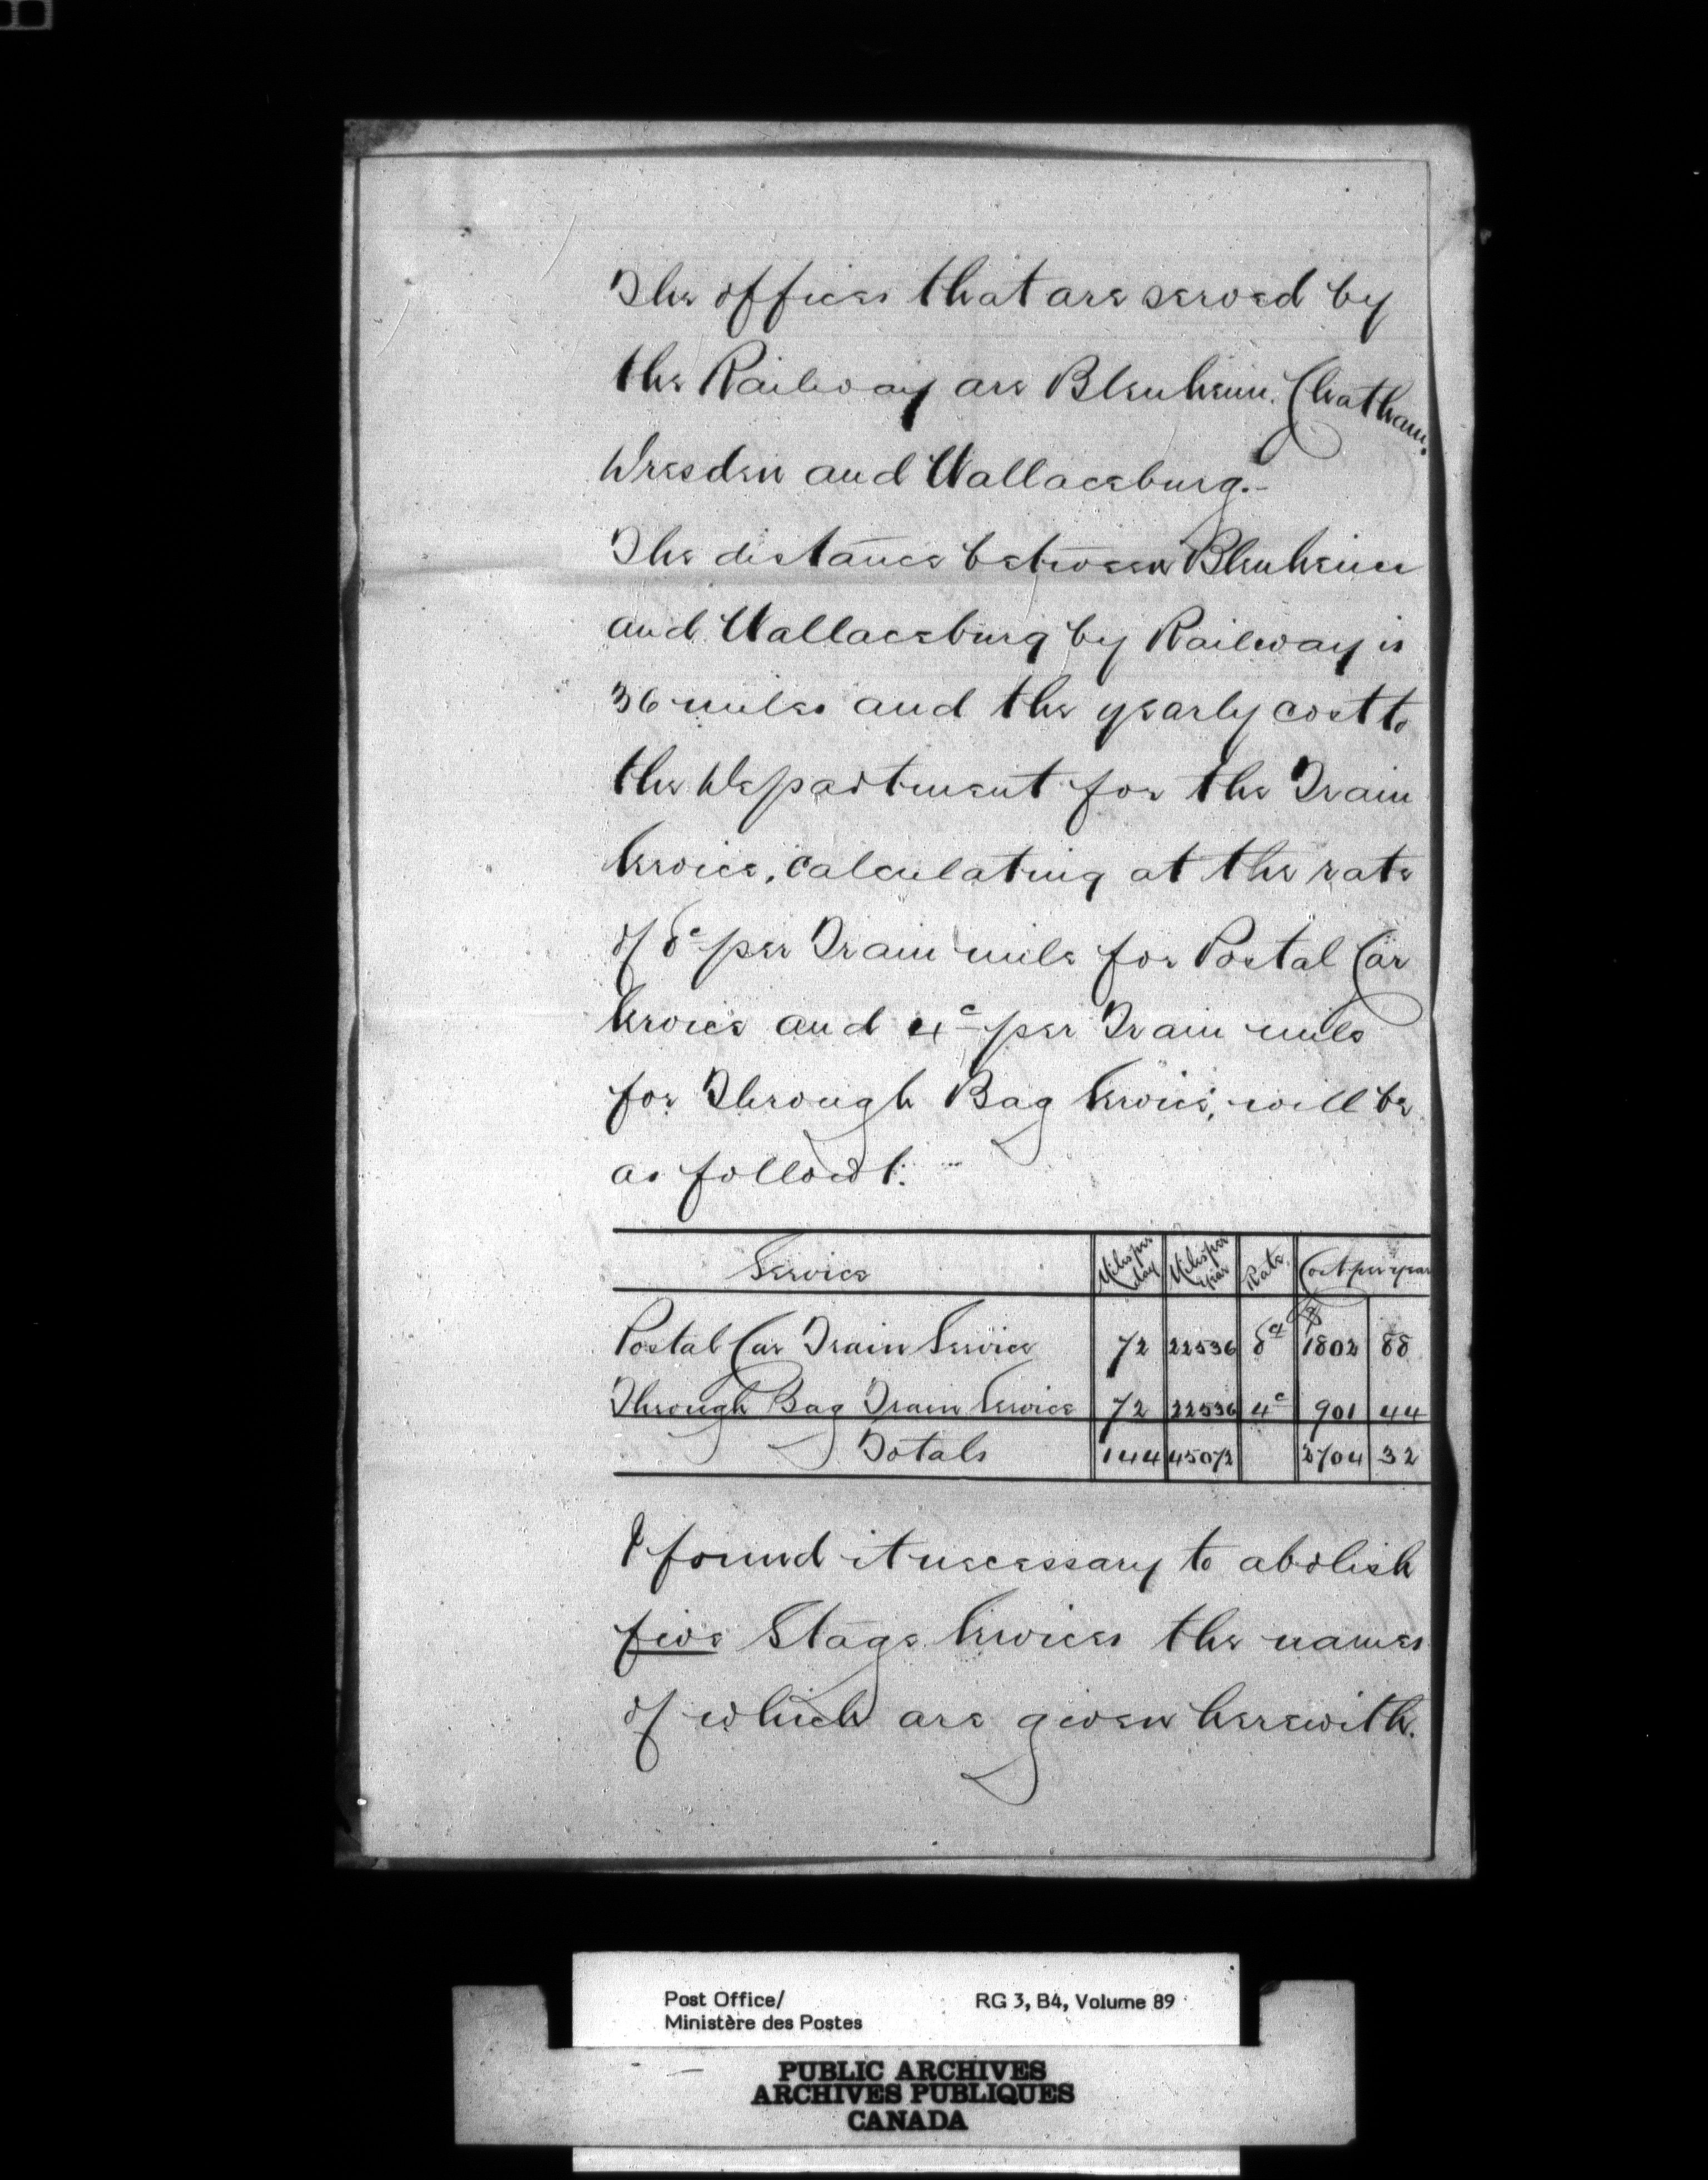 The offices that are served by
the Railway are Blenheim. Chatham.
Dresden and Wallaceburg.-
The distance between Blenheim
and Wallaceburg by Railway is
36 miles and the yearly cost to
the Department for the Train
Service, calculating at the rate
of 8c per Train mile for Postal Car
Service and 4c per Train mile
for Through Bag Service, will be
as follows:-
Service Miles per day Miles per year Rate. Cost per year
Postal Car Train Service 72 22536 8c $1802 88
Through Bag Train Service 72 22536 4c 901 44
Totals 144 45072 2704 32
I found it necessary to abolish
five Stage Services the names
of which are given herewith.
Post Office/ RG 3, B4, Volume 89
Ministère des Postes
PUBLIC ARCHIVES
ARCHIVES PUBLIQUES
CANADA